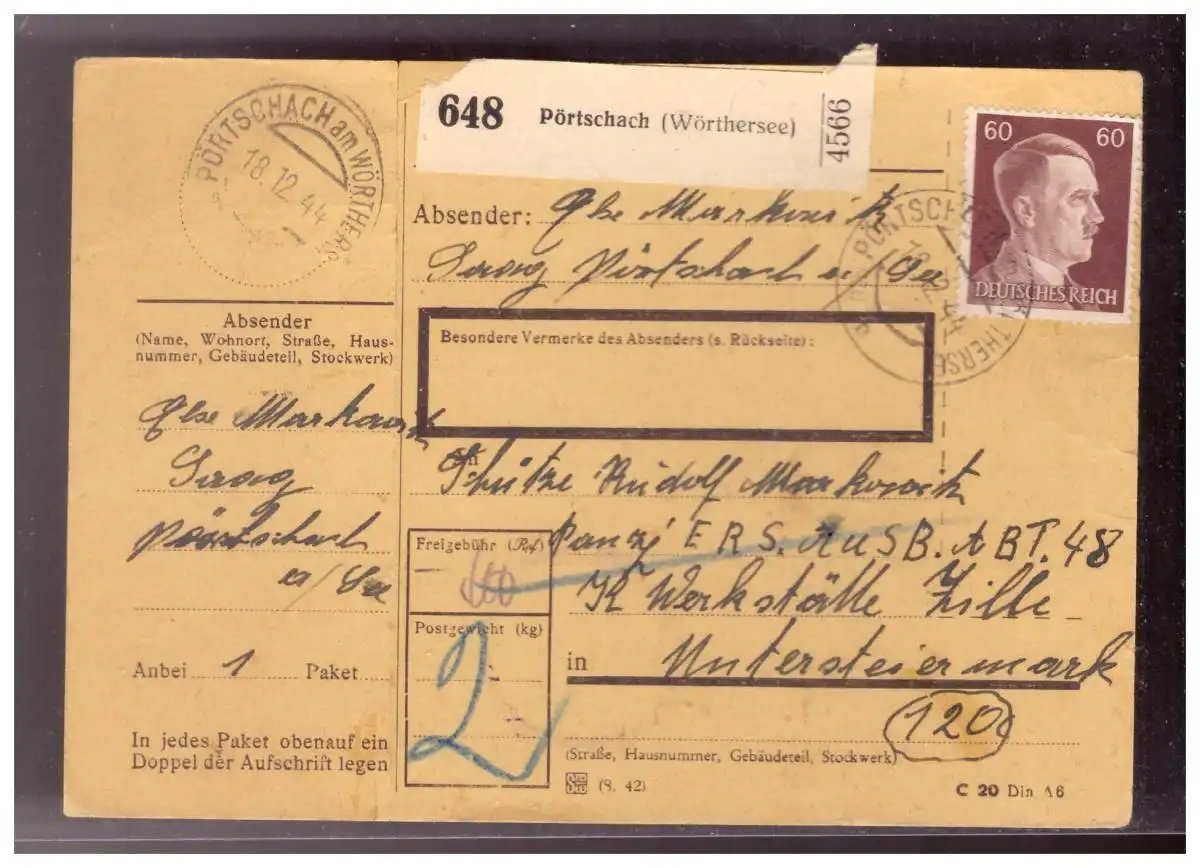 PÖRTSCHACH am WÖRTHERS.
18.12.44
648 Pörtschach (Wörthersee)
4566
60 60
DEUTSCHES REICH
Absender: Else Markowitz
Pörtschach a/See
PÖRTSCH
18.12.44
RTHERSEE
Besondere Vermerke des Absenders (s. Rückseite):
Absender
(Name, Wohnort, Straße, Haus-
nummer, Gebäudeteil, Stockwerk)
Else Markowitz
Pörtschach
a/See
Anbei 1 Paket
In jedes Paket obenauf ein
Doppel der Aufschrift legen
An
Schütze Rudolf Markowitz
Panz. ERS. AUSB. ABT. 48
K Werkstätte Zille
in Untersteiermark
Freigebühr (Rpf)
Postgewicht (kg)
2
(12a)
(Straße, Hausnummer, Gebäudeteil, Stockwerk)
(8. 42)
C 20 Din A6